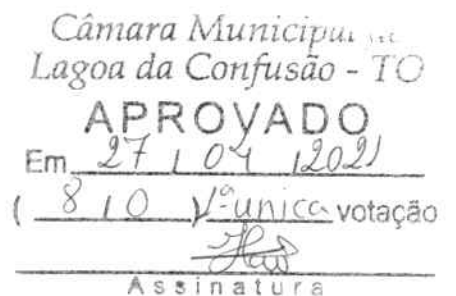 Câmara Municipal
Lagoa da Confusão - TO
APROVADO
Em 27 / 04 / 2021
( 8 / 0 ) 1ª unica votação
Assinatura